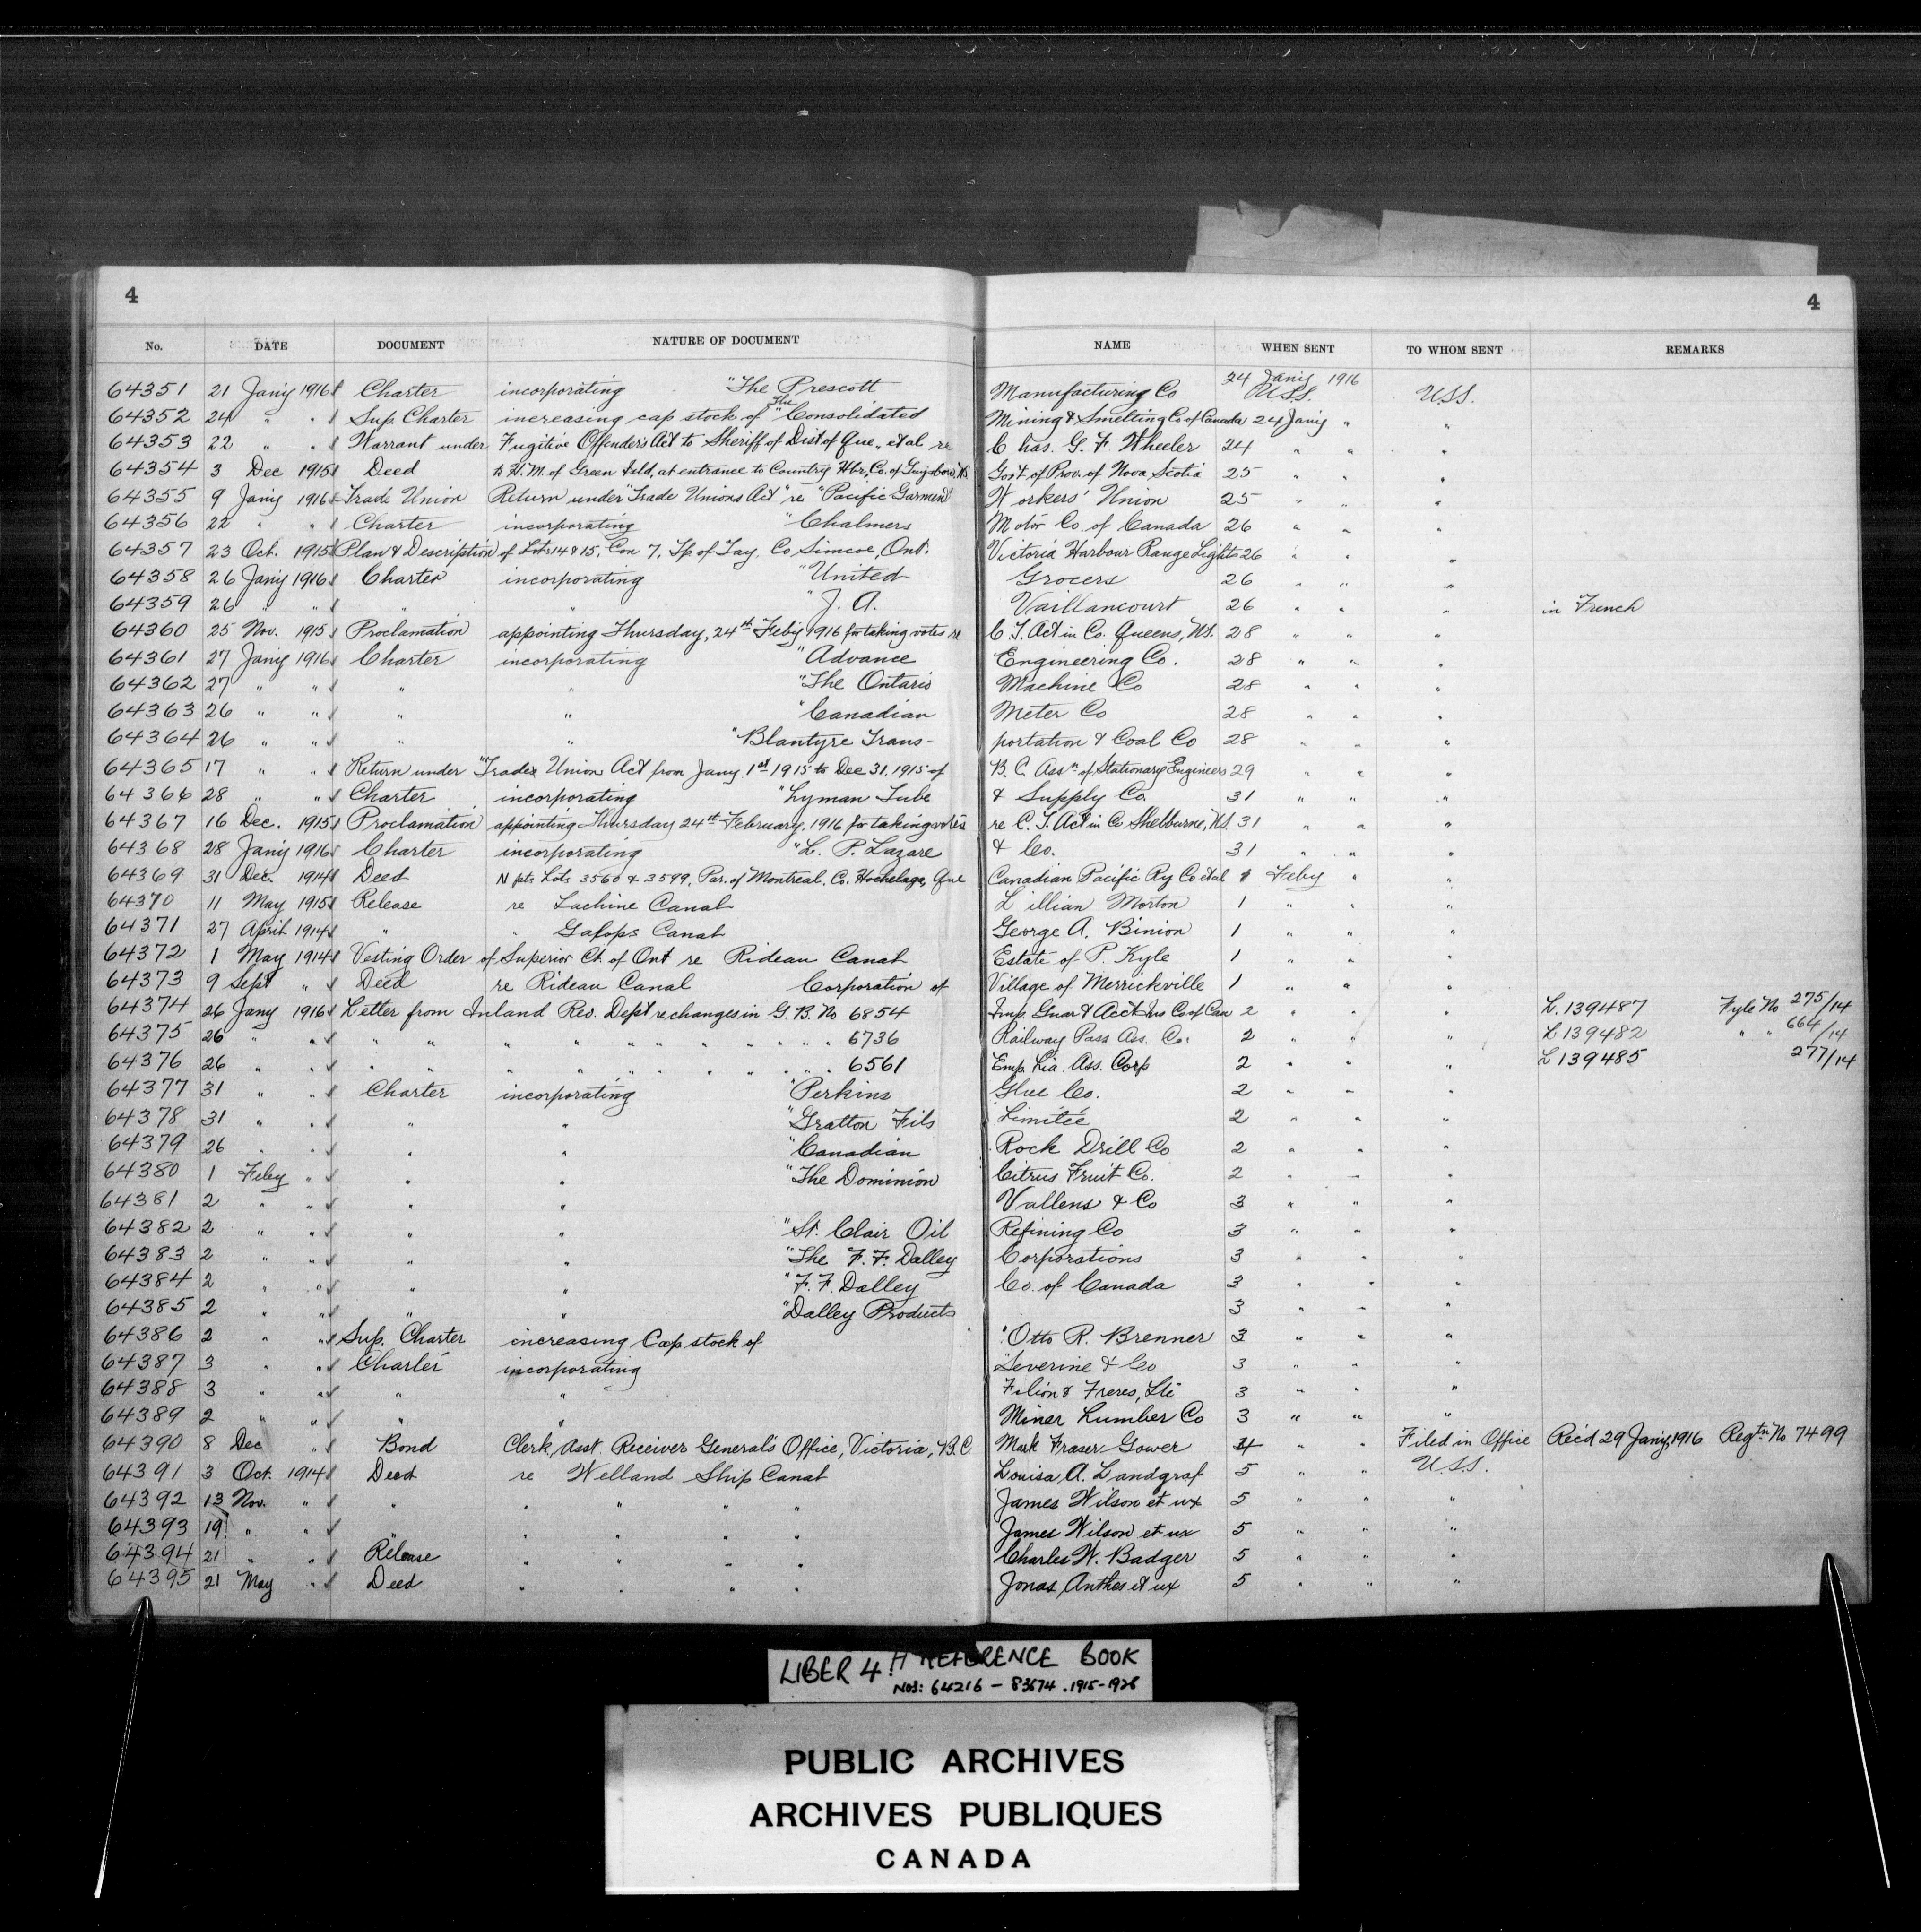 4 4
No. DATE DOCUMENT NATURE OF DOCUMENT NAME WHEN SENT TO WHOM SENT REMARKS
64351 21 Jan'y 1916 Charter incorporating "The Prescott Manufacturing Co 24 Jan'y 1916 U.S.S. U.S.S.
64352 24 " " Sup Charter increasing cap stock of "The Consolidated Mining & Smelting Co of Canada 24 Jan'y " "
64353 22 " " Warrant under Fugitive Offenders Act to Sheriff of Dist of Que., et al re Chas. G. F. Wheeler 24 " " "
64354 3 Dec 1915 Deed to H.M. of Green Isld, at entrance to Country Hbr, Co. of Guysboro, NS Gov't of Prov. of Nova Scotia 25 " " "
64355 9 Jan'y 1916 Trade Union Return under "Trade Unions Act" re "Pacific Garment Workers' Union 25 " " "
64356 22 " " Charter incorporating "Chalmers Motor Co. of Canada 26 " " "
64357 23 Oct. 1915 Plan & Description of Lots 14 & 15, Con 7, Tp. of Tay, Co Simcoe, Ont. Victoria Harbour Range Lights 26 " " "
64358 26 Jan'y 1916 Charter incorporating "United Grocers 26 " " "
64359 26 " " " " "J. A. Vaillancourt 26 " " " in French
64360 25 Nov. 1915 Proclamation appointing Thursday, 24th Feb'y 1916 for taking votes re C. T. Act in Co. Queens, NS. 28 " " "
64361 27 Jan'y 1916 Charter incorporating "Advance Engineering Co. 28 " " "
64362 27 " " " " "The Ontario Machine Co 28 " " "
64363 26 " " " " "Canadian Meter Co 28 " " "
64364 26 " " " " "Blantyre Trans- portation & Coal Co 28 " " "
64365 17 " " Return under "Trades Unions Act from Jany. 1st 1915 to Dec 31, 1915 of B. C. Assn of Stationary Engineers 29 " " "
64366 28 " " Charter incorporating "Lyman Tube & Supply Co. 31 " " "
64367 16 Dec. 1915 Proclamation appointing Thursday 24th February, 1916 for taking votes re C. T. Act in Co Shelburne, NS. 31 " " "
64368 28 Jan'y 1916 Charter incorporating "L. P. Lazare & Co. 31 " " "
64369 31 Dec. 1914 Deed N pts Lots 3560 & 3599, Par. of Montreal, Co. Hochelaga, Que Canadian Pacific Ry Co et al 1 Feby " "
64370 11 May 1915 Release re Lachine Canal Lillian Morton 1 " " "
64371 27 April 1914 " " Galops Canal George A. Binion 1 " " "
64372 1 May 1914 Vesting Order of Superior Ct. of Ont re Rideau Canal Estate of P. Kyle 1 " " "
64373 9 Sept " Deed re Rideau Canal Corporation of Village of Merrickville 1 " " "
64374 26 Jany 1916 Letter from Inland Rev. Dept re changes in G. B. No 6854 Imp. Guar & Acct Ins Co of Can 2 " " " L. 139487 Fyle No 275/14
64375 26 " " " " " " " " " " " 6736 Railway Pass Ass. Co. 2 " " " L 139482 " " 664/14
64376 26 " " " " " " " " " " " 6561 Emp. Lia. Ass. Corp 2 " " " L 139485 277/14
64377 31 " " Charter incorporating "Perkins Glue Co. 2 " " "
64378 31 " " " " "Gratton Fils Limitée 2 " " "
64379 26 " " " " "Canadian Rock Drill Co 2 " " "
64380 1 Feby " " " "The Dominion Citrus Fruit Co. 2 " " "
64381 2 " " " " Vallens & Co 3 " " "
64382 2 " " " " "St. Clair Oil Refining Co 3 " " "
64383 2 " " " " "The F. F. Dalley Corporations 3 " " "
64384 2 " " " " "F. F. Dalley Co. of Canada 3 " " "
64385 2 " " " " "Dalley Products 3 " " "
64386 2 " " Sup. Charter increasing Cap stock of "Otto R. Brenner 3 " " "
64387 3 " " Charter incorporating "Severine & Co 3 " " "
64388 3 " " " " Filion & Freres, Lté 3 " " "
64389 2 " " " " Miner Lumber Co 3 " " "
64390 8 Dec " Bond Clerk, Asst. Receiver General's Office, Victoria, B.C Mark Fraser Gower 4 " " Filed in Office Rec'd 29 Jan'y 1916 Regtn No 7499
64391 3 Oct. 1914 Deed re Welland Ship Canal Louisa A. Landgraf 5 " " U.S.S.
64392 13 Nov. " " " " " " James Wilson et ux 5 " " "
64393 19 " " " " " " " James Wilson et ux 5 " " "
64394 21 " " Release " " " " Charles W. Badger 5 " " "
64395 21 May " Deed " " " " Jonas Anthes et ux 5 " " "
LIBER 4 H REFERENCE BOOK
NOS: 64216 - 83674 . 1915-1926
PUBLIC ARCHIVES
ARCHIVES PUBLIQUES
CANADA